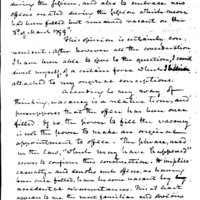 during the session, and also to embrace new
offices created during the session, which never
had been filled but remained vacant on the
3d of March 1799.
This opinion is certainly con-
venient. After however all the consideration
I have been able to give to the question, I cannot
divest myself of a certain force which I
attached to more congenial conceptions.
According to my way of
thinking, vacancy is a relative term, and
presupposes that the office has been once
filled. If so the power to fill the vacancy
is not the power to make an original
appointment to office. The phrase, and
in the Law, "which may have happened"
serves to confirm this construction. It implies
casualty, and denotes such offices, as having
been once filled, have become vacant by
accidental circumstances. This at least
appears to me the most familiar and obvious